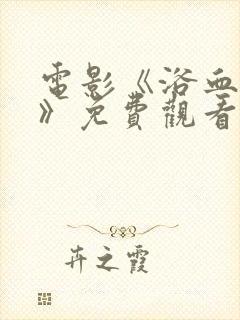 電影《浴血
》免費觀看
卉之霞